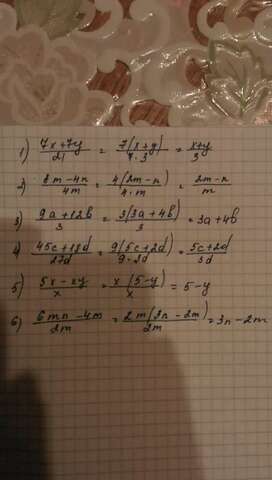 1) 7x+7y/21 = 7(x+y)/7·3 = x+y/3
2) 8m-4n/4m = 4(2m-n)/4·m = 2m-n/m
3) 9a+12b/3 = 3(3a+4b)/3 = 3a+4b
4) 45c+18d/27d = 9(5c+2d)/9·3d = 5c+2d/3d
5) 5x-xy/x = x(5-y)/x = 5-y
6) 6mn-4m/2m = 2m(3n-2m)/2m = 3n-2m